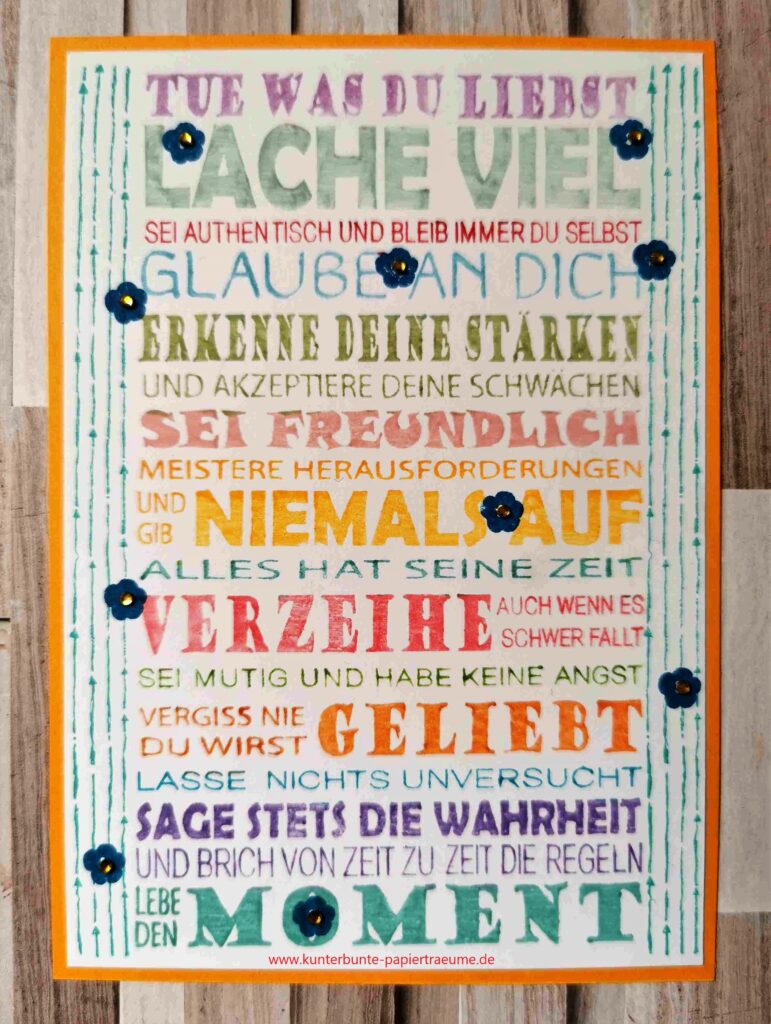 TUE WAS DU LIEBST
LACHE VIEL
SEI AUTHENTISCH UND BLEIB IMMER DU SELBST
GLAUBE AN DICH
ERKENNE DEINE STÄRKEN
UND AKZEPTIERE DEINE SCHWÄCHEN
SEI FREUNDLICH
MEISTERE HERAUSFORDERUNGEN
UND
GIB
NIEMALS AUF
ALLES HAT SEINE ZEIT
VERZEIHE
AUCH WENN ES
SCHWER FÄLLT
SEI MUTIG UND HABE KEINE ANGST
VERGISS NIE
DU WIRST
GELIEBT
LASSE NICHTS UNVERSUCHT
SAGE STETS DIE WAHRHEIT
UND BRICH VON ZEIT ZU ZEIT DIE REGELN
LEBE
DEN
MOMENT
www.kunterbunte-papiertraeume.de